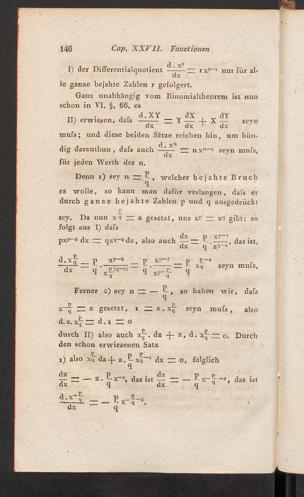 146 Cap. XXVII. Functionen
I) der Differentialquotient d . x^r / dx = r x^{r-1} nur für al-
le ganze bejahte Zahlen r gefolgert.
Ganz unabhängig vom Binomialtheorem ist nun
schon in VI. §. 66. es
II) erwiesen, daſs d. XY / dx = Y dX/dx + X dY/dx seyn
muſs; und diese beiden Sätze reichen hin, um bün-
dig darzuthun, daſs auch d. x^n / dx = n x^{n-1} seyn muſs,
für jeden Werth des n.
Denn 1) sey n = p/q, welcher bejahte Bruch
es wolle, so kann man dafür verlangen, daſs er
durch ganze bejahte Zahlen p und q ausgedrückt
sey. Da nun x^{p/q} = z gesetzt, uns x^p = z^q gibt: so
folgt aus I) daſs
p x^{p-1} dx = q z^{q-1} dz, also auch dz/dx = p/q . x^{p-1}/z^{q-1}. das ist.
d. x^{p/q} / dx = p/q . x^{p-1} / x^{p/q (q-1)} = p/q . x^{p-1} / x^{p-p/q} = p/q x^{p/q-1} seyn muſs.
Ferner 2) sey n = - p/q, so haben wir, daſs
x^{-p/q} = z gesetzt, 1 = z. x^{p/q} seyn muſs, also
d. z. x^{p/q} = d. 1 = 0
durch II) also auch x^{p/q}. dz + z, d. x^{p/q} = 0. Durch
den schon erwiesenen Satz
1) also x^{p/q} dz + z. p/q x^{p/q-1} dx = 0, folglich
dz/dx = - z. p/q x^{-1}, das ist dz/dx = - p/q x^{-p/q-1}, das ist
d. x^{-p/q} / dx = - p/q x^{-p/q-1}.